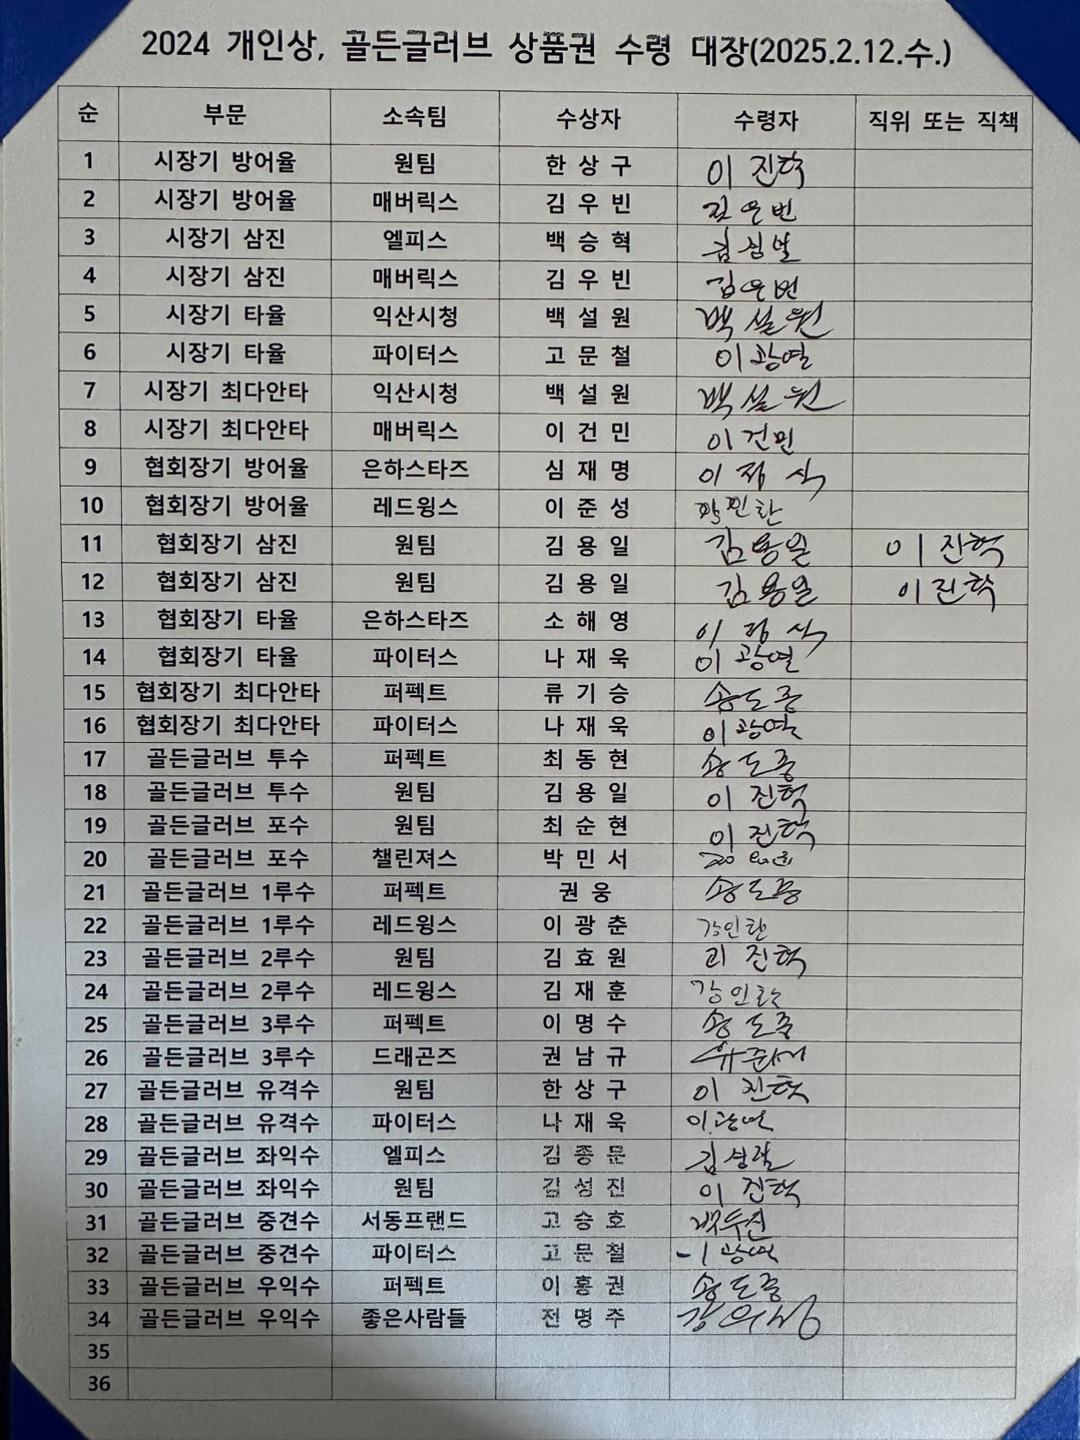 2024 개인상, 골든글러브 상품권 수령 대장(2025.2.12.수.)
순 부문 소속팀 수상자 수령자 직위 또는 직책
1 시장기 방어율 원팀 한 상 구 이 진혁
2 시장기 방어율 매버릭스 김 우 빈 김우빈
3 시장기 삼진 엘피스 백 승 혁
4 시장기 삼진 매버릭스 김 우 빈 김우빈
5 시장기 타율 익산시청 백 설 원 백설원
6 시장기 타율 파이터스 고 문 철 이광열
7 시장기 최다안타 익산시청 백 설 원 백설원
8 시장기 최다안타 매버릭스 이 건 민 이건민
9 협회장기 방어율 은하스타즈 심 재 명 이 정 식
10 협회장기 방어율 레드윙스 이 준 성
11 협회장기 삼진 원팀 김 용 일 김용일 이 진혁
12 협회장기 삼진 원팀 김 용 일 김용일 이진혁
13 협회장기 타율 은하스타즈 소 해 영 이 정 식
14 협회장기 타율 파이터스 나 재 욱 이광열
15 협회장기 최다안타 퍼펙트 류 기 승 송도중
16 협회장기 최다안타 파이터스 나 재 욱 이광열
17 골든글러브 투수 퍼펙트 최 동 현 송도중
18 골든글러브 투수 원팀 김 용 일 이 진혁
19 골든글러브 포수 원팀 최 순 현 이 진혁
20 골든글러브 포수 챌린져스 박 민 서
21 골든글러브 1루수 퍼펙트 권 웅 송도중
22 골든글러브 1루수 레드윙스 이 광 춘 강인환
23 골든글러브 2루수 원팀 김 효 원 이 진혁
24 골든글러브 2루수 레드윙스 김 재 훈 강인환
25 골든글러브 3루수 퍼펙트 이 명 수 송도중
26 골든글러브 3루수 드래곤즈 권 남 규
27 골든글러브 유격수 원팀 한 상 구 이 진혁
28 골든글러브 유격수 파이터스 나 재 욱 이광열
29 골든글러브 좌익수 엘피스 김 종 문
30 골든글러브 좌익수 원팀 김 성 진 이 진혁
31 골든글러브 중견수 서동프랜드 고 승 호
32 골든글러브 중견수 파이터스 고 문 철 이광열
33 골든글러브 우익수 퍼펙트 이 홍 권 송도중
34 골든글러브 우익수 좋은사람들 전 명 주
35
36